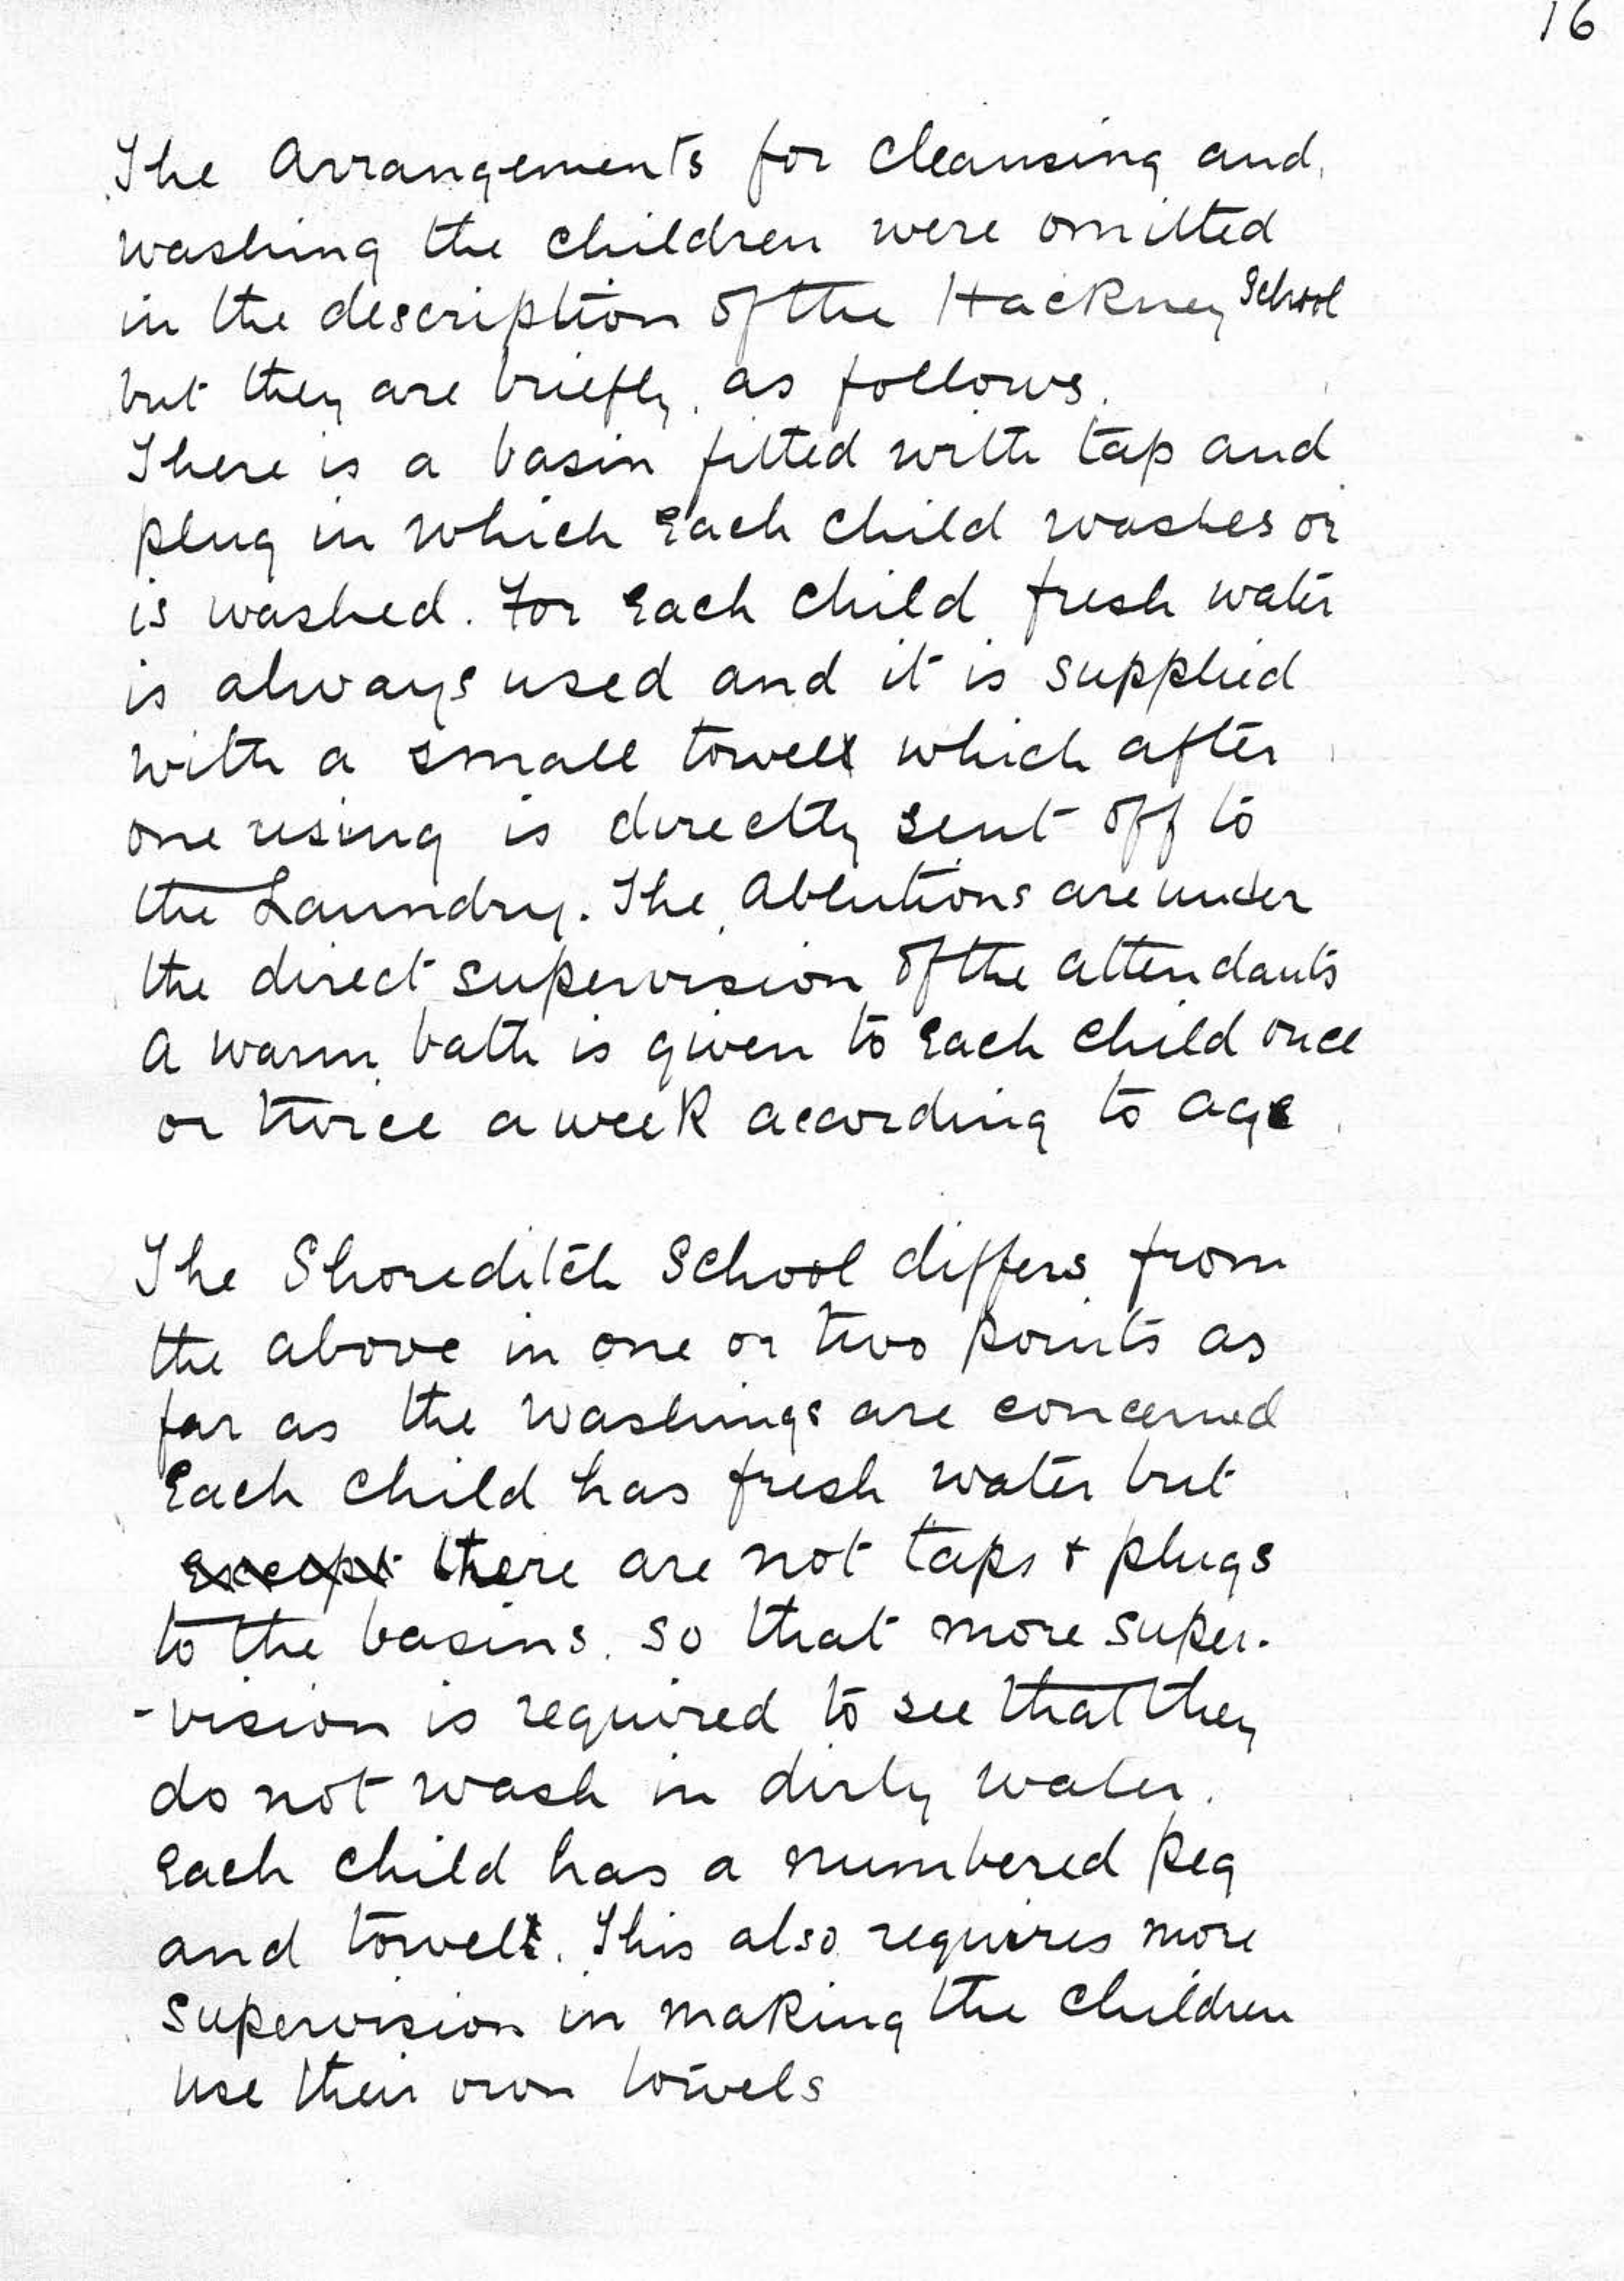 16
The Arrangements for cleansing and
washing the children were omitted
in the description of the Hackney School
but they are briefly as follows.
There is a basin fitted with tap and
plug in which Each child washes or
is washed. For Each child fresh water
is always used and it is supplied
with a small towel which after
one using is directly sent off to
the Laundry. The Ablutions are under
the direct supervision of the attendants
A warm bath is given to Each child once
or twice a week according to age
The Shoreditch School differs from
the above in one or two points as
far as the washings are concerned
Each child has fresh water but
Except there are not taps + plugs
to the basins. so that more super-
-vision is required to see that they
do not wash in dirty water.
Each child has a numbered peg
and towel. This also requires more
supervision in making the children
use their own towels